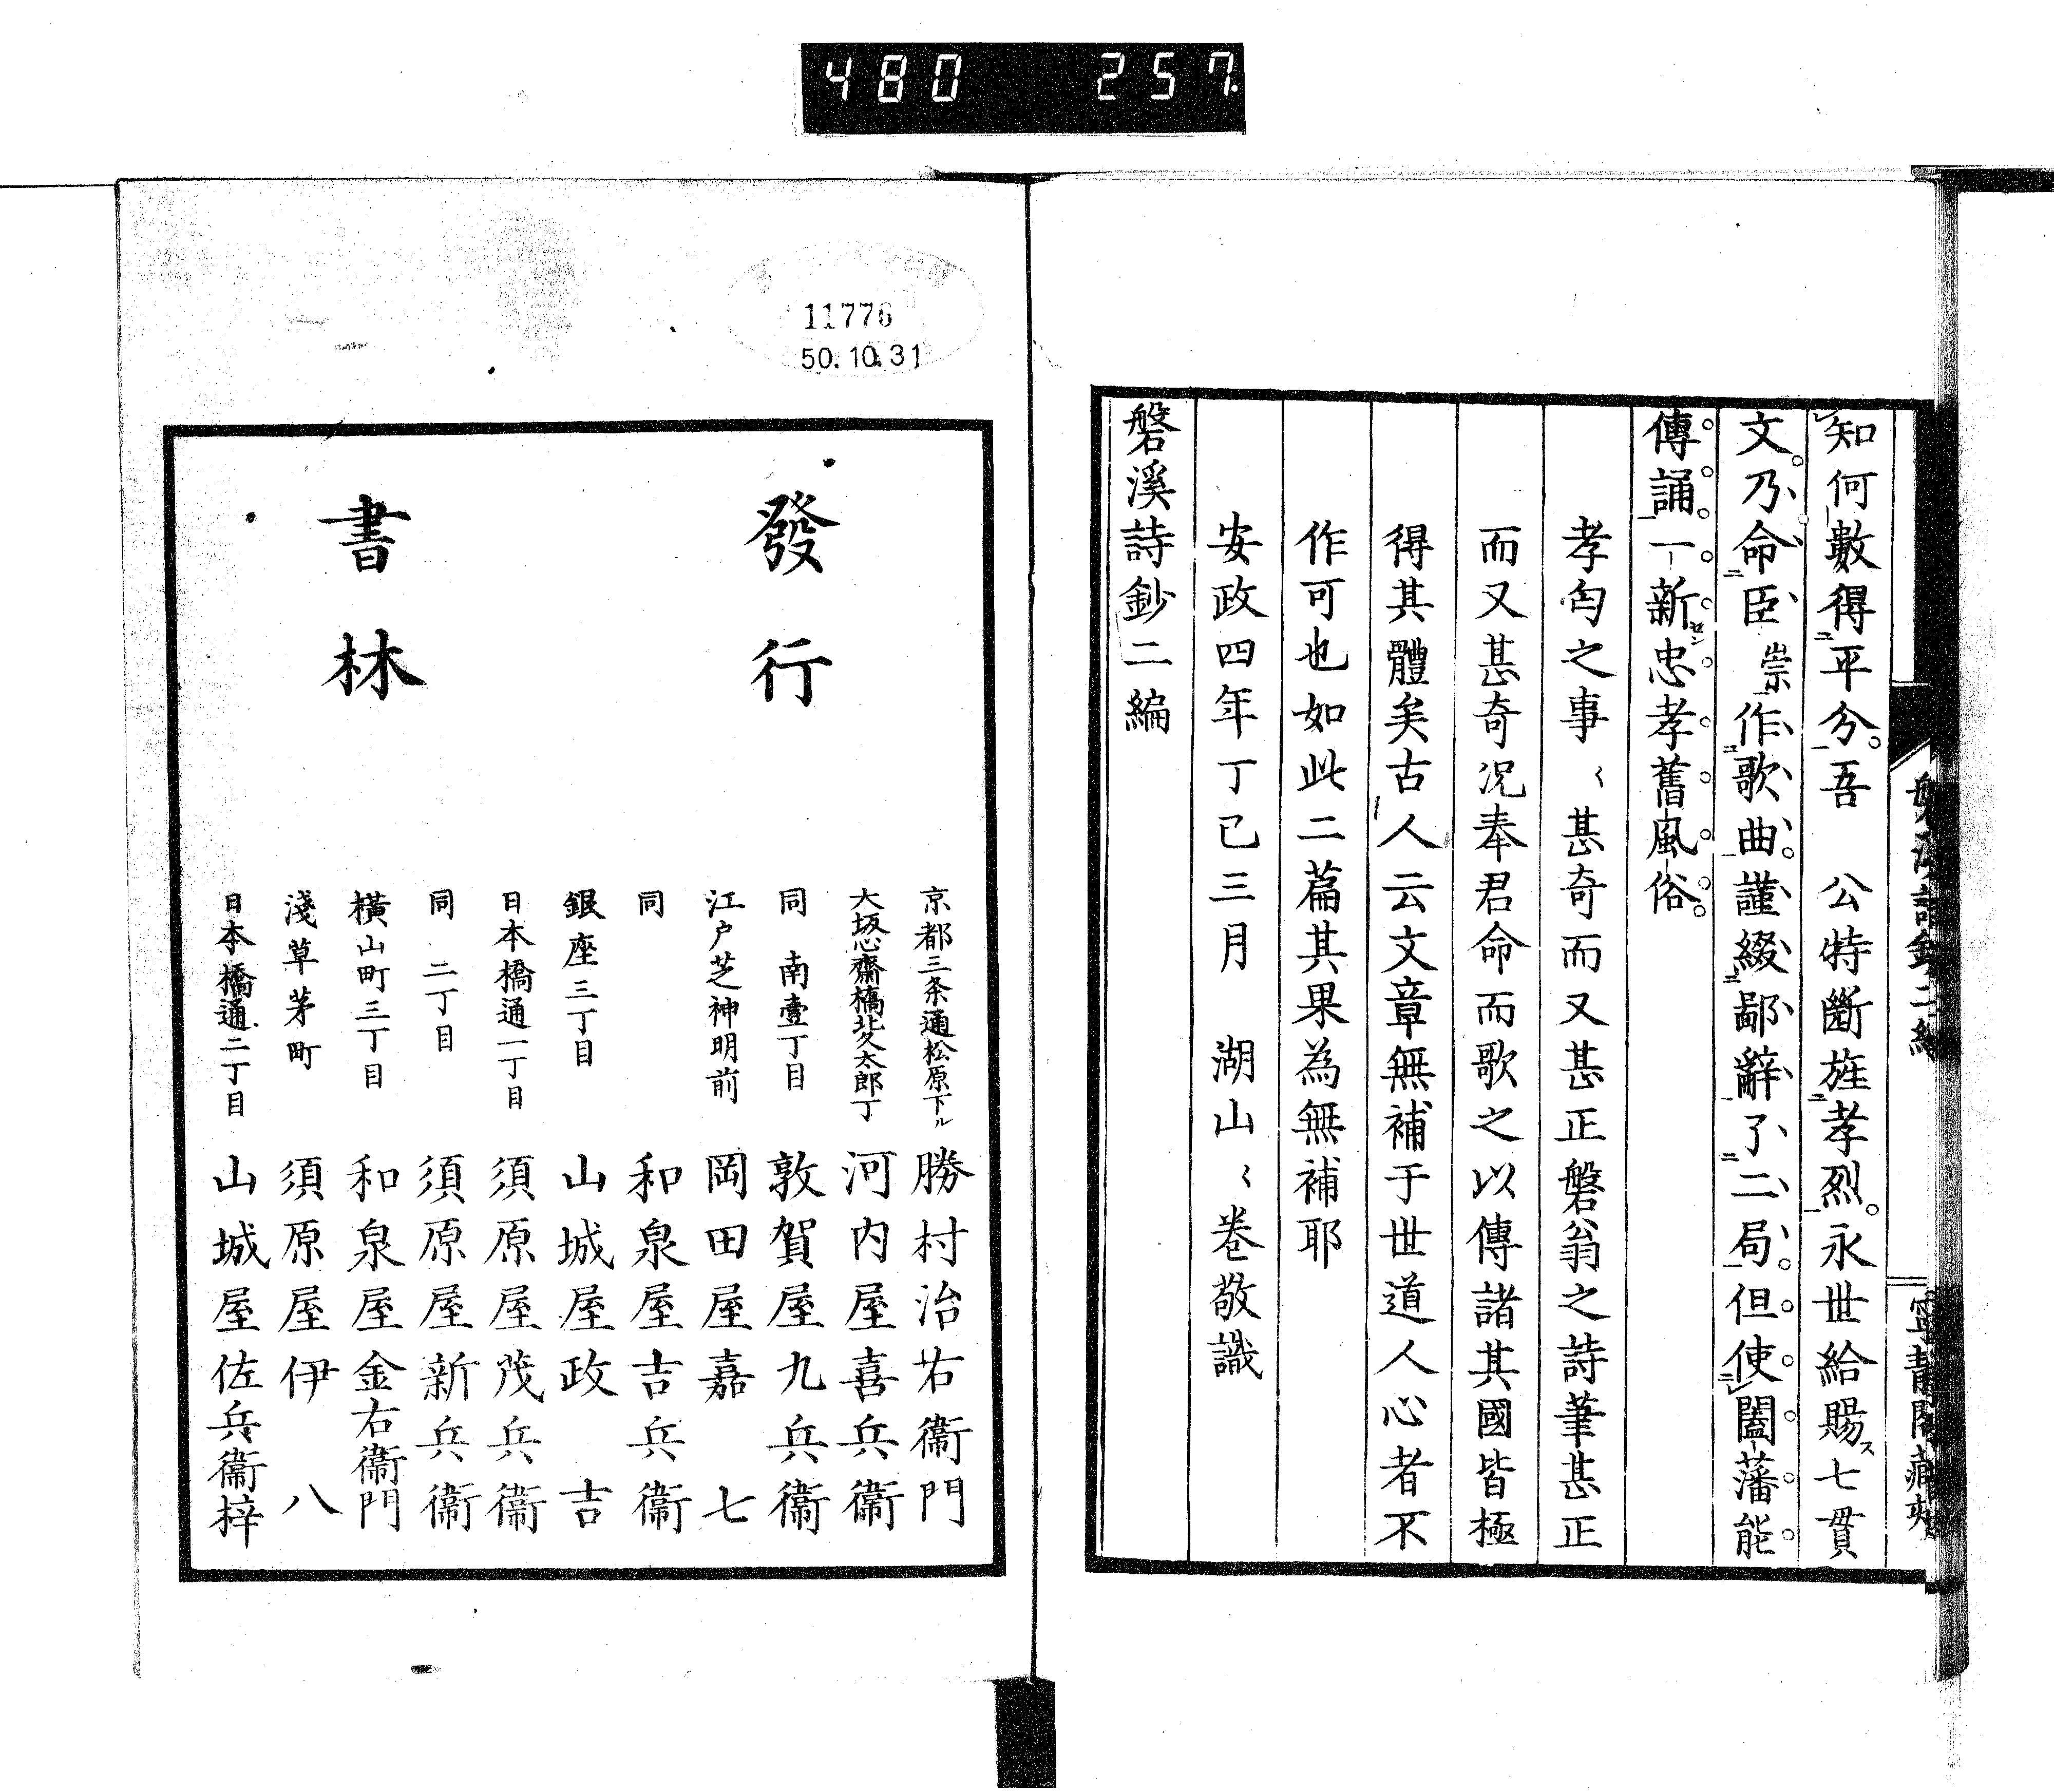 480 257
知何數得平分吾 公特斷旌孝烈永世給賜ス七貫
文乃命臣 崇作歌曲謹綴鄙辭了二局但使闔藩能
傳誦一新セシ忠孝舊風俗
孝匄之事〻甚奇而又甚正磐翁之詩筆甚正
而又甚奇况奉君命而歌之以傳諸其國皆極
得其體矣古人云文章無補于世道人心者不
作可也如此二篇其果為無補耶
安政四年丁巳三月 湖山〻巻敬識
磐溪詩鈔二編
11776
50.10.31
發行
書林
京都三条通松原下ル 勝村治右衞門
大坂心齋橋北久太郎丁 河内屋喜兵衞
同 南壹丁目 敦賀屋九兵衞
江戸芝神明前 岡田屋嘉七
同 和泉屋吉兵衞
銀座三丁目 山城屋政吉
日本橋通一丁目 須原屋茂兵衞
同 二丁目 須原屋新兵衞
横山町三丁目 和泉屋金右衞門
淺草茅町 須原屋伊八
日本橋通二丁目 山城屋佐兵衞梓